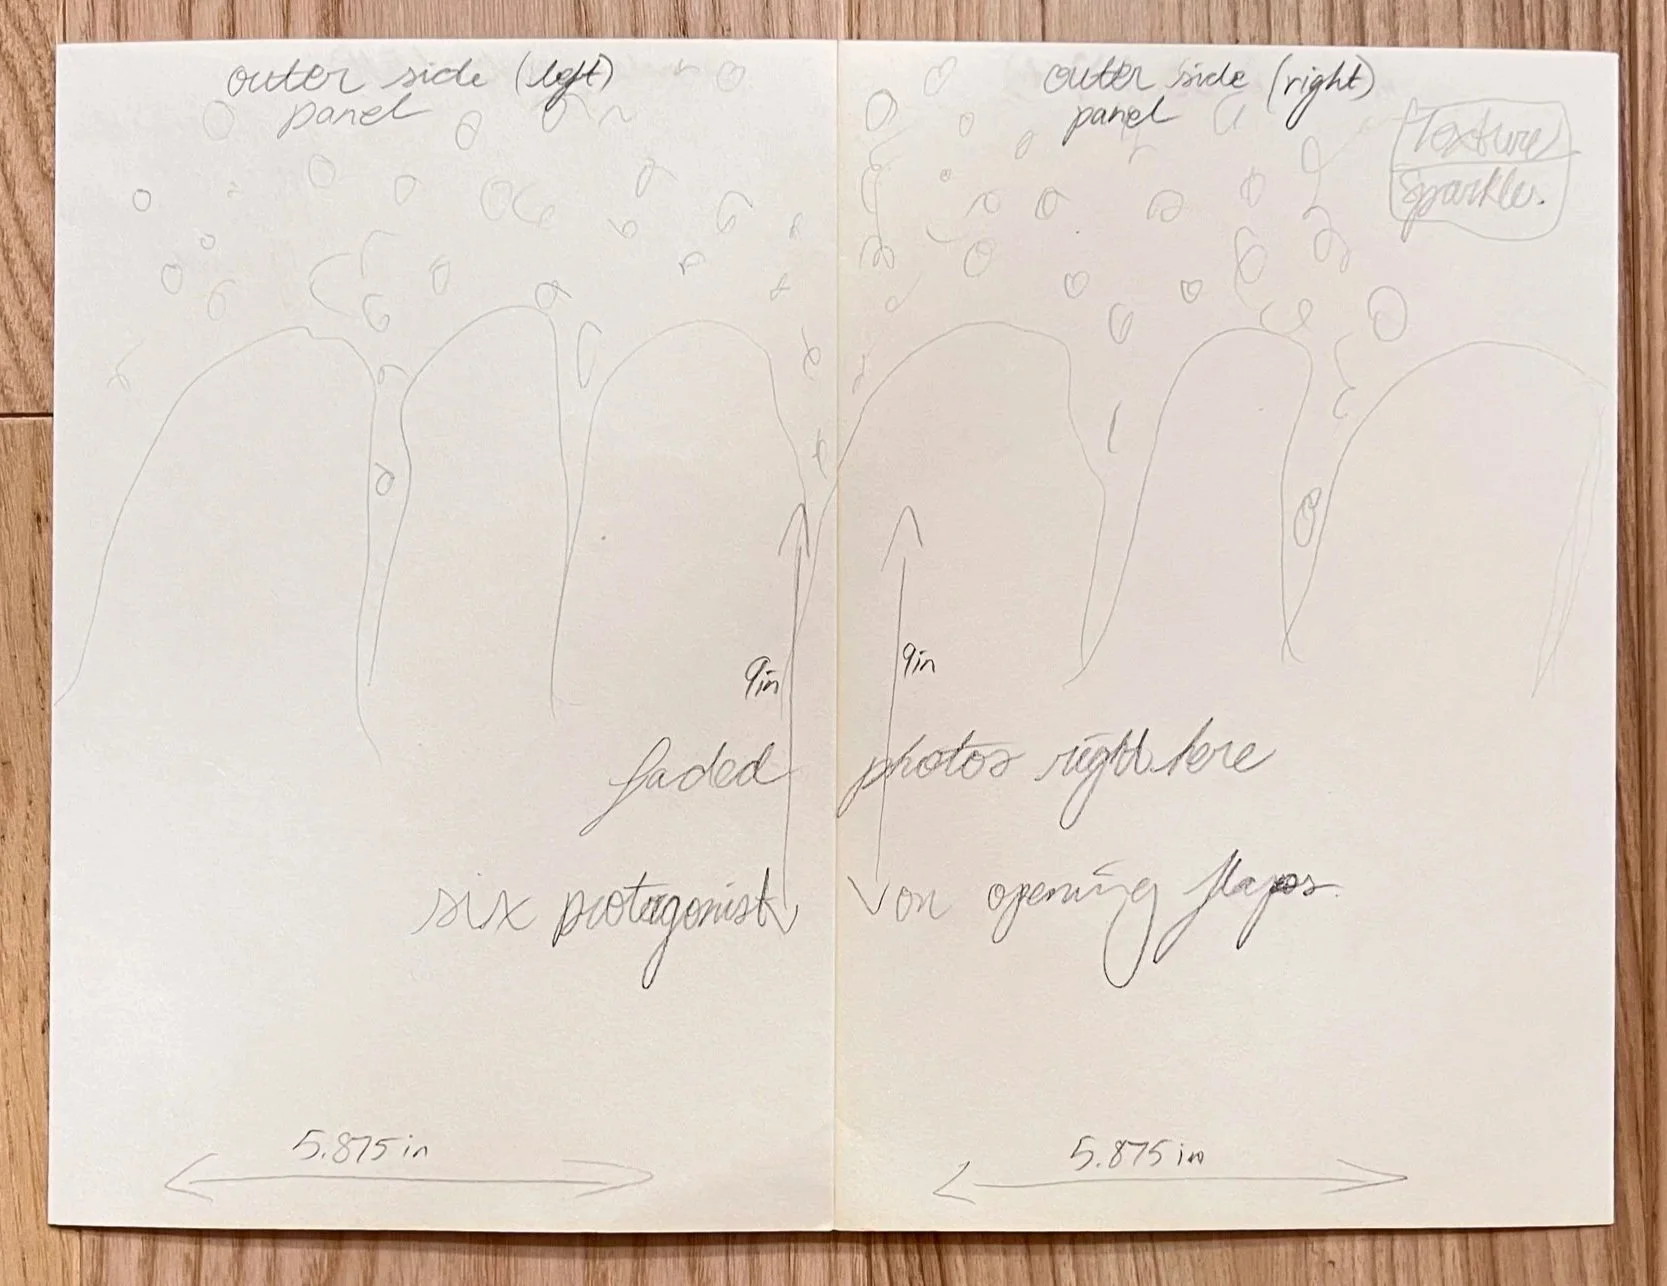 outer side (left)
panel
outer side (right)
panel
Texture
Sparkle.
9in
9in
faded photos right here
six protagonist on opening flaps.
5.875 in
5.875 in